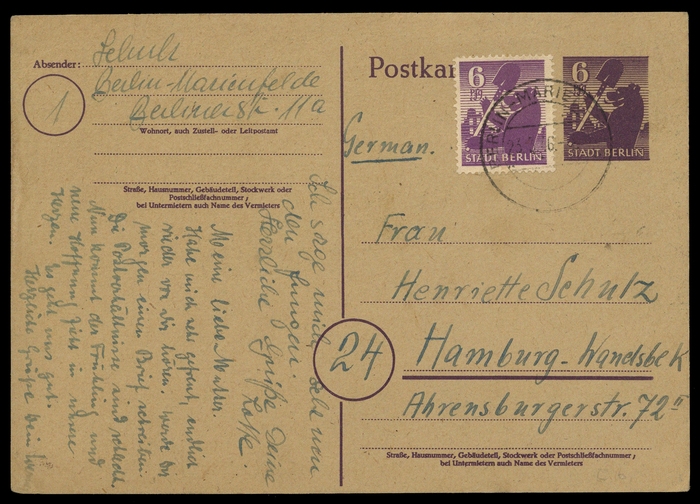 Absender: Schulz
Berlin-Marienfelde
1
Berlinerstr. 11a
Wohnort, auch Zustell- oder Leitpostamt
Straße, Hausnummer, Gebäudeteil, Stockwerk oder
Postschließfachnummer;
bei Untermietern auch Name des Vermieters
Postkar
6
STADT BERLIN
6
STADT BERLIN
BERLIN-MARIEN
German.
Frau
Henriette Schulz
24
Hamburg-Wandsbek
Ahrensburgerstr. 72
Straße, Hausnummer, Gebäudeteil, Stockwerk oder Postschließfachnummer;
bei Untermietern auch Name des Vermieters
Meine liebe Mutter.
Habe mich sehr gefreut, endlich
wieder von Dir hören. Werde Dir
morgen einen Brief schreiben.
Die Postverhältnisse sind schlecht.
Nun kommt der Frühling und
neue Hoffnung zieht in unsere
Herzen. Es geht uns gut.
Herzliche Grüße Dein
Ich sage
den Jungen.
Herzliche Grüße Deine